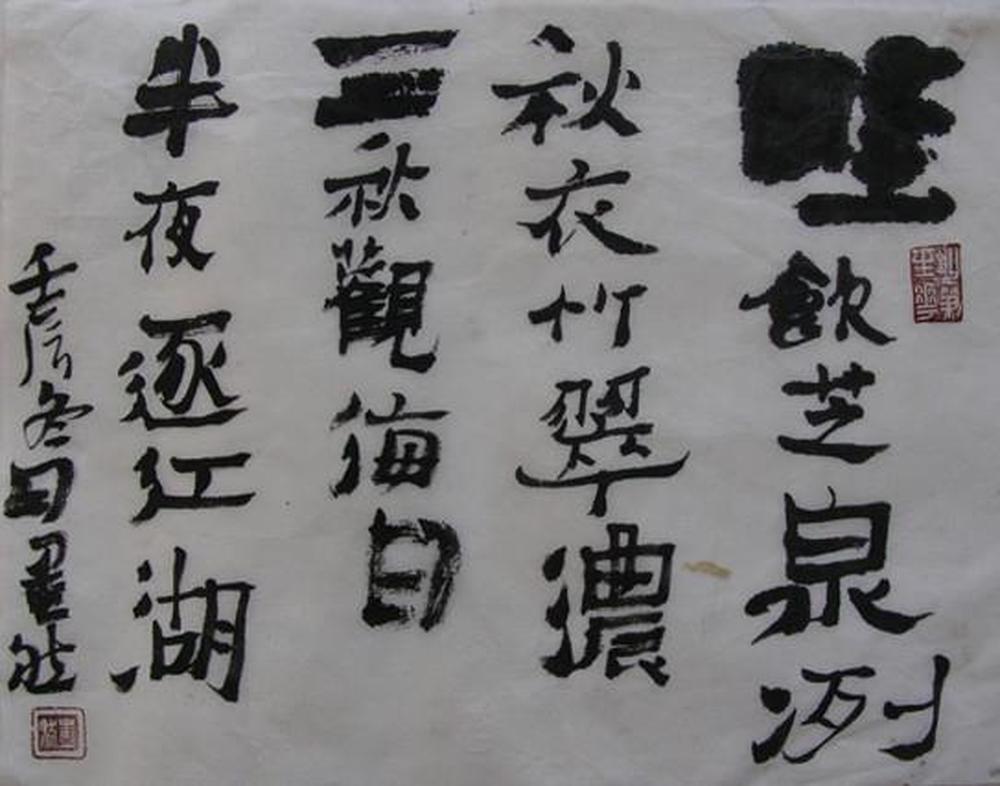 飲芝泉冽
秋衣竹翠濃
三秋觀海日
半夜逐江湖
壬辰冬日